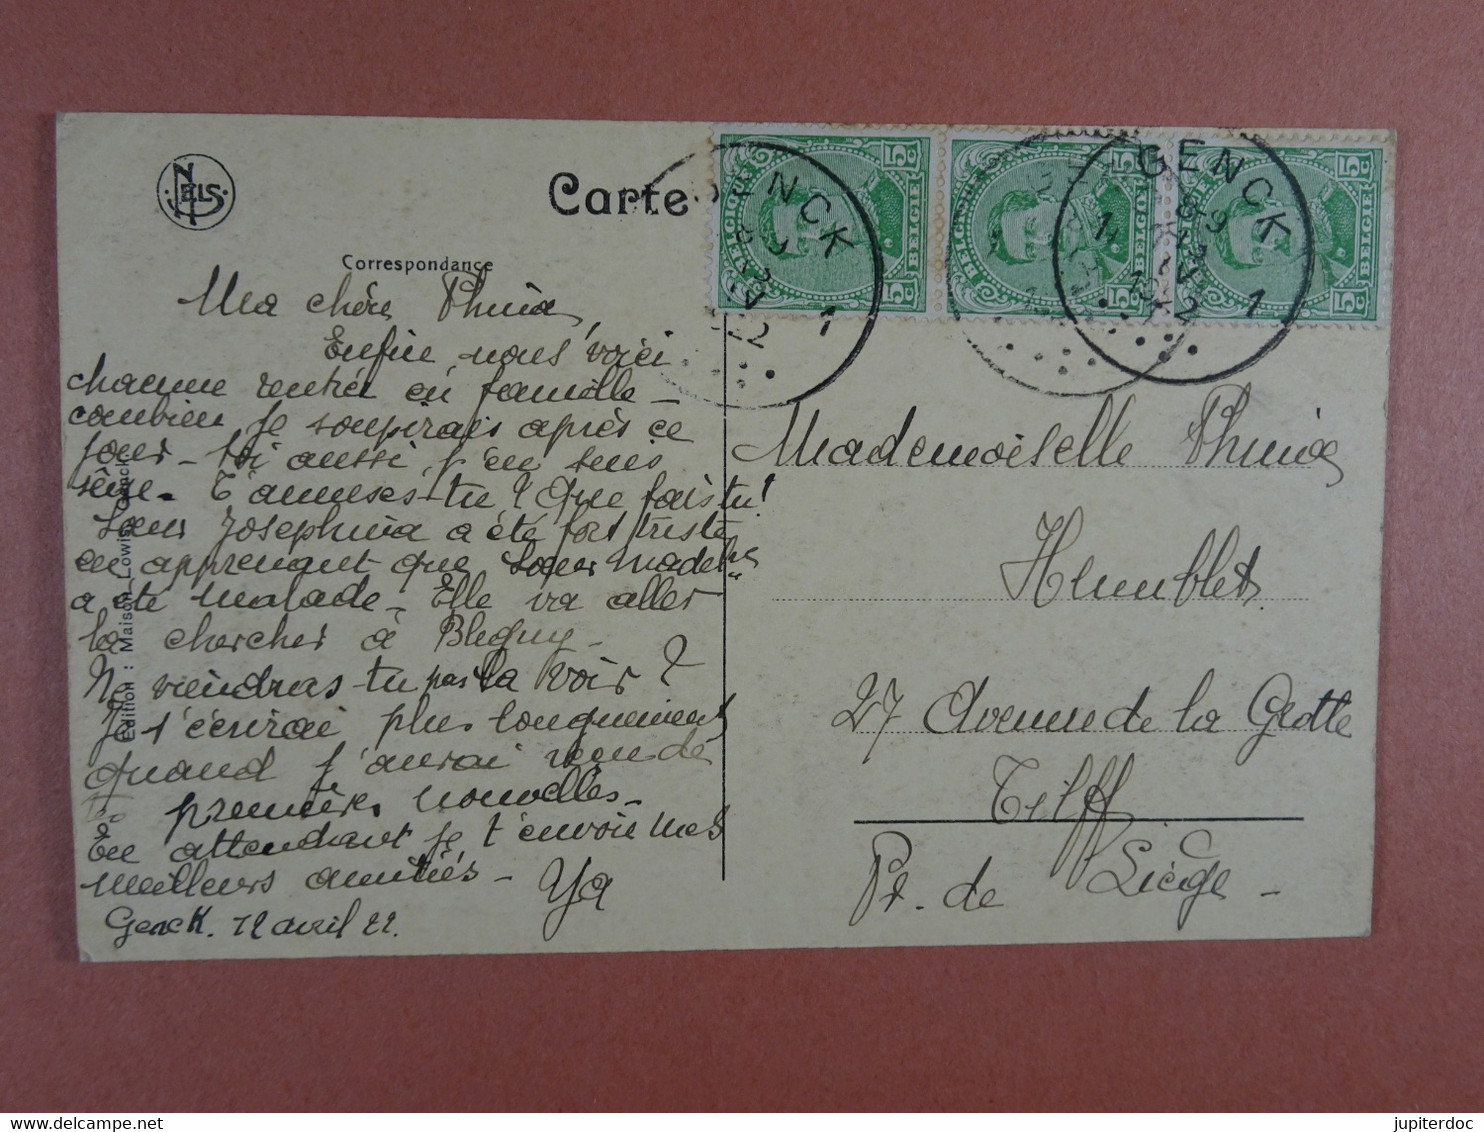 NELS
Carte
Correspondance
Ma chère Phina,
Enfin nous voici
chacune rentrée en famille -
combien je soupirais après ce
jour - toi aussi, j'en suis
sûre. T'amuses-tu? Que fais tu!
Sœur Josephina a été fort triste
en apprenant que Sœur Madelne
a été malade - Elle va aller
la chercher à Blegny -
Ne viendras-tu pas la voir?
Je t'écrirai plus longuement
quand j'aurai reçu de
tes premières nouvelles -
En attendant je t'envoie mes
meilleurs amitiés - Ya
Genck. 12 avril 22.
Edition : Maison Lowis, Genck
GENCK
1
GENCK
8-9
1
BELGIQUE 5c BELGIE
BELGIQUE 5c BELGIE
5c BELGIE 5c
Mademoiselle Phina
Humblet
27 Avenue de la Grotte
Tilff
Pr. de Liège -
jupiterdoc